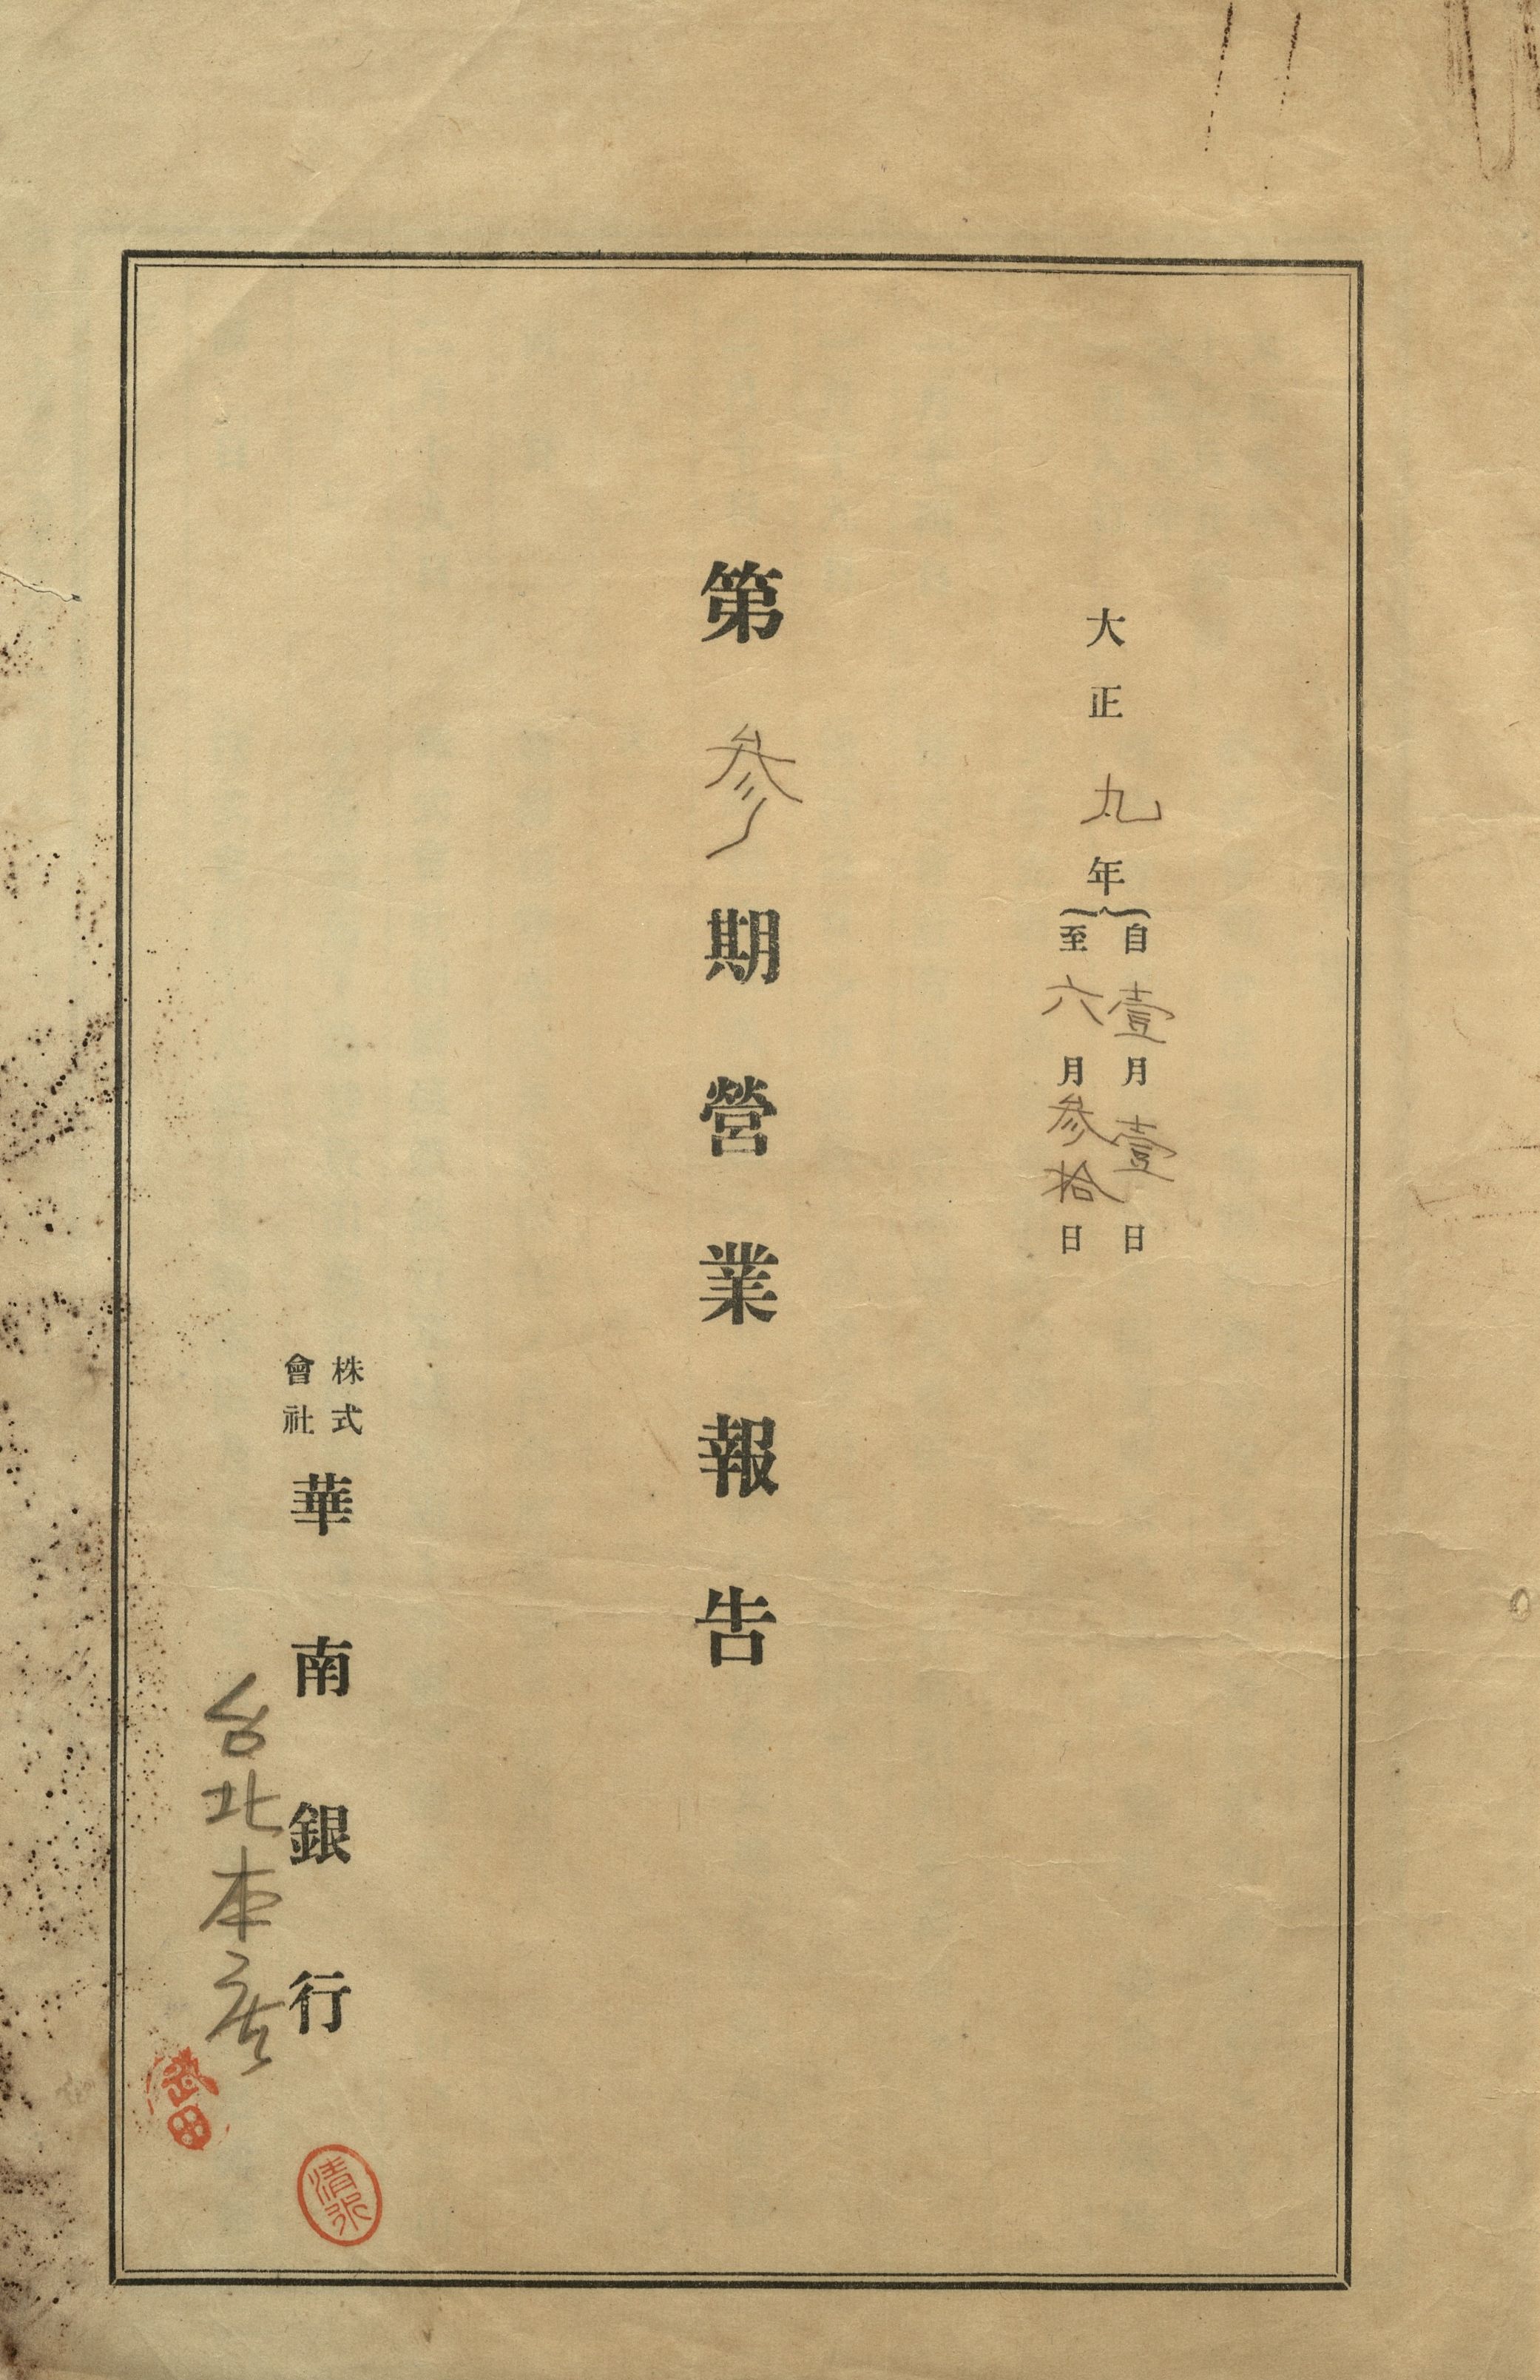 大正九年
自壹月壹日
至六月參拾日
第參期營業報告
株式
會社
華南銀行
台北本店
清水
武田